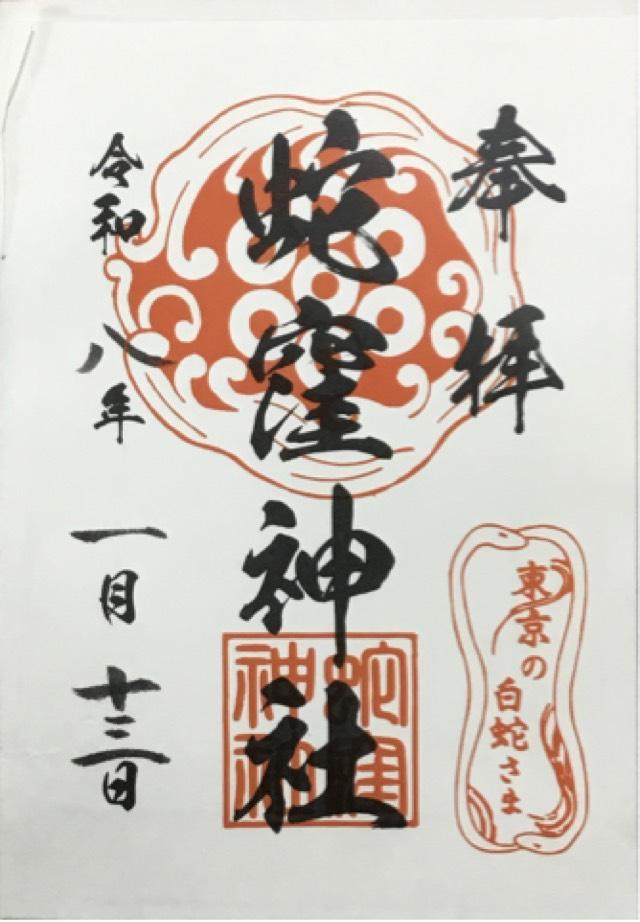 奉拝
蛇窪神社
令和八年一月十三日
東京の
白蛇さま